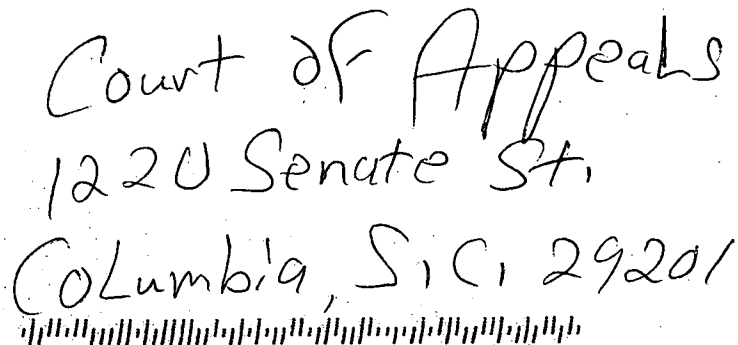 Court of Appeals
1220 Senate St.
Columbia, S.C. 29201